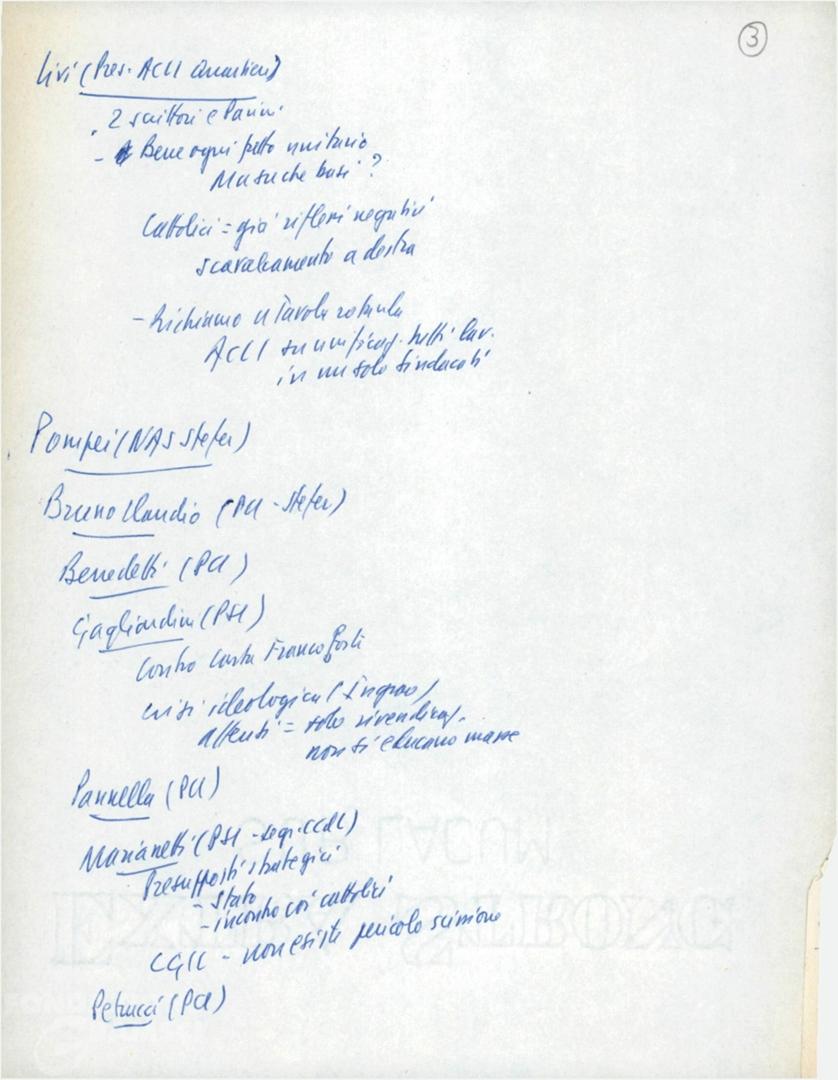 3
Livi (Pres. ACLI Quartieri)
. 2 scrittori e Parini
- Bene ogni fatto unitario
Ma su che basi?
Cattolici = già riflessi negativi
scavalcamento a destra
- Richiamo a Tavola rotonda
ACLI su unificaz. tutti lav.
in un solo sindacati
Pompei (NAS Stefer)
Bruno Claudio (PCI - Stefer)
Benedetti (PCI)
Gagliardini (PSI)
Contro Carta Franco
crisi ideologica (Ingrao)
attenti = solo rivendicaz.
non si educano masse
Pannella (PCI)
Marianetti (PSI - segr. CCdL)
Presupposti strategici
- Stato
- incontro coi cattolici
CGIL - non esiste pericolo scissione
Petrucci (PCI)
SUB LACUM
EXTRA STRONG